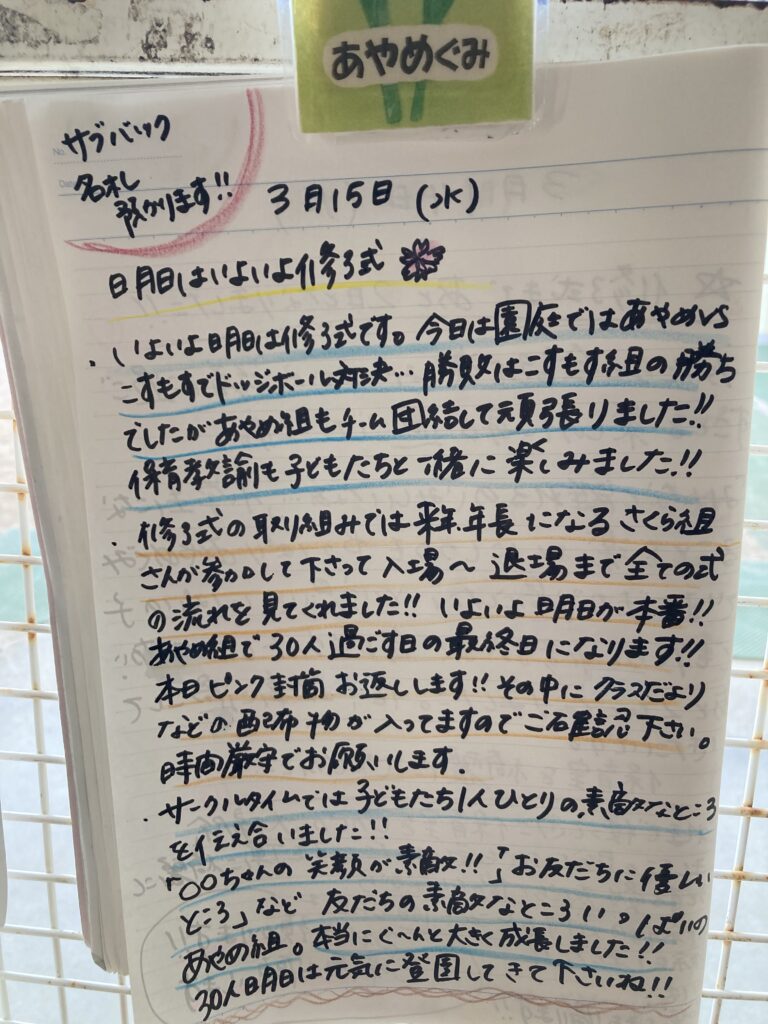 あやめぐみ
サブバック
名札
預かります!!
3月15日(水)
明日はいよいよ修了式
・いよいよ明日は修了式です。今日は園庭ではあやめVS
こすもすでドッジボール対決… 勝敗はこすもす組の勝ち
でしたがあやめ組もチーム団結して頑張りました!!
保育教諭も子どもたちと一緒に楽しみました!!
・修了式の取り組みでは来年、年長になるさくら組
さんが参加して下さって入場〜退場まで全ての式
の流れを見てくれました!! いよいよ明日が本番!!
あやめ組で30人過ごす日の最終日になります!!
本日ピンク封筒お返しします!! その中にクラスだより
などの配布物が入ってますのでご確認下さい。
時間厳守でお願いします.
・サークルタイムでは子どもたち1人ひとりの素敵なところ
を伝え合いました!!
「〇〇ちゃんの笑顔が素敵!!」「お友だちに優しい
ところ」など 友だちの素敵なところいっぱいの
あやめ組。本当にぐ〜んと大きく成長しました!!
30人明日は元気に登園してきて下さいね!!